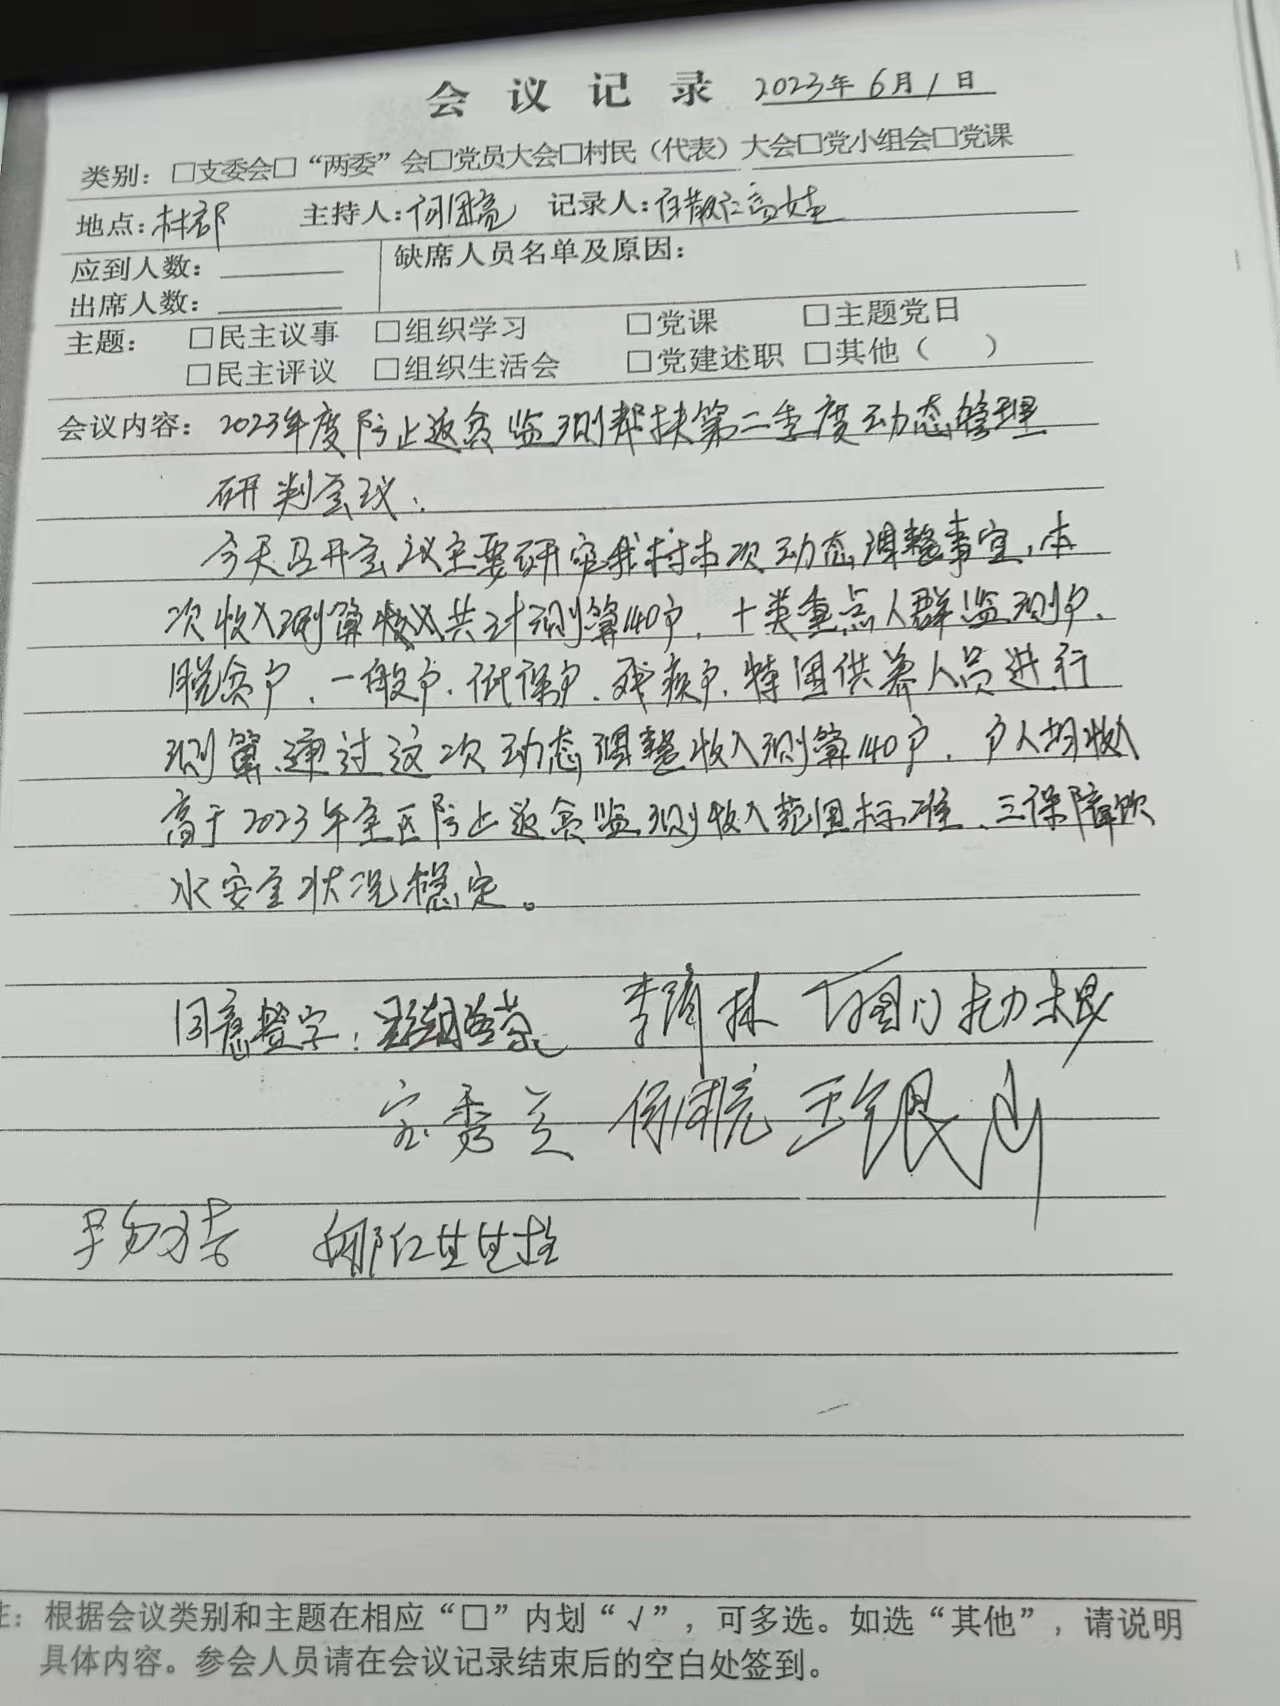 会议记录 2023年6月1日
类别：□支委会□“两委”会□党员大会□村民（代表）大会□党小组会□党课
地点：村部 主持人：何国亮 记录人：
应到人数： 缺席人员名单及原因：
出席人数：
主题： □民主议事 □组织学习 □党课 □主题党日
□民主评议 □组织生活会 □党建述职 □其他（ ）
会议内容：2023年度防止返贫监测帮扶第二季度动态管理
研判会议：
今天召开会议主要研究我村本次动态调整事宜，本
次收入测算 共计测算140户，十类重点人群监测户、
脱贫户、一般户、低保户、残疾户、特困供养人员进行
测算，通过这次动态调整收入测算140户，户人均收入
高于2023年全区防止返贫监测收入范围标准、三保障饮
水安全状况稳定。
同意签字：
何国亮 王银山
那仁
注：根据会议类别和主题在相应“□”内划“√”，可多选。如选“其他”，请说明
具体内容。参会人员请在会议记录结束后的空白处签到。